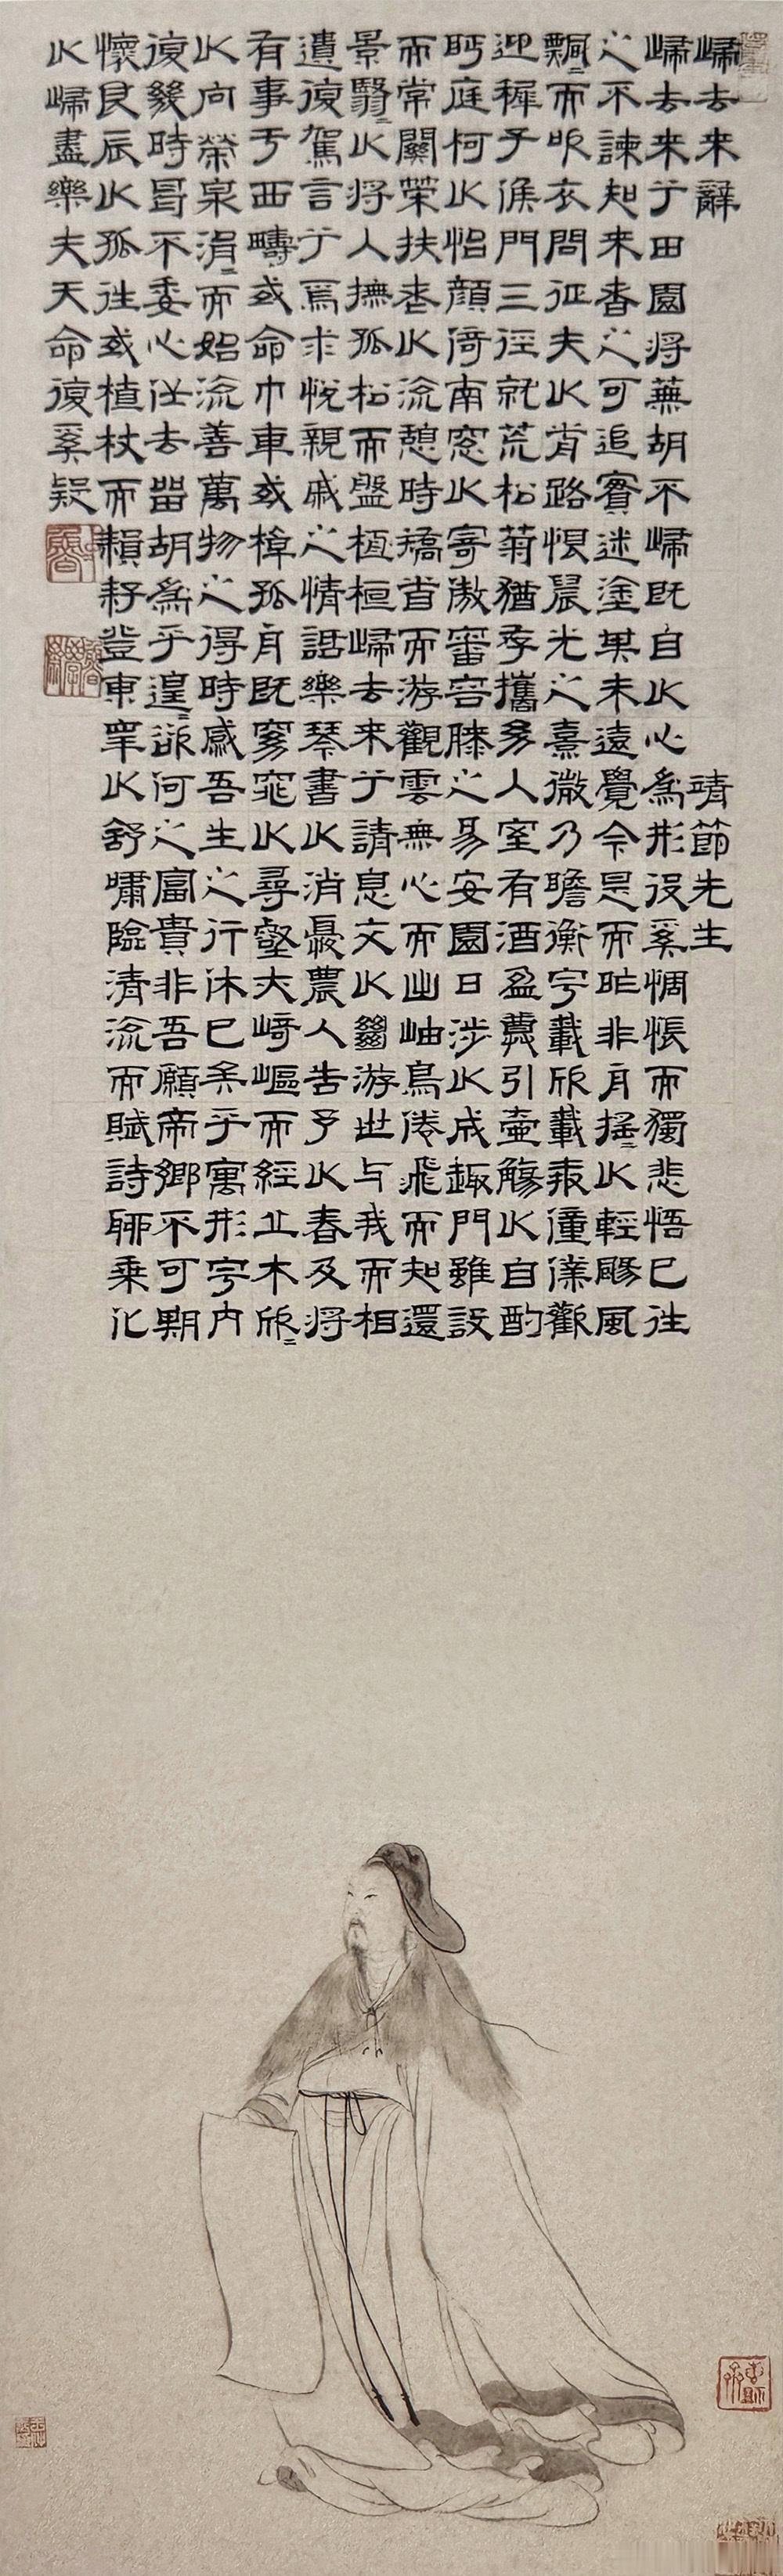 歸去来辭
靖節先生
歸去来兮田園将蕪胡不歸既自以心為形役奚惆悵而獨悲悟已往
之不諫知来者之可追實迷塗其未遠覺今是而昨非舟搖〻以輕颺風
飄〻而吹衣問征夫以前路恨晨光之熹微乃瞻衡宇載欣載奔僮僕歡
迎稚子候門三徑就荒松菊猶存攜幼入室有酒盈樽引壺觴以自酌
眄庭柯以怡顏倚南窓以寄傲審容膝之易安園日涉以成趣門雖設
而常關策扶老以流憩時矯首而游觀雲無心而出岫鳥倦飛而知還
景翳〻以将入撫孤松而盤桓桓歸去来兮請息交以絕游世与我而相
遺復駕言兮焉求悅親戚之情話樂琴書以消憂農人告予以春及将
有事于西疇或命巾車或棹孤舟既窈窕以尋壑亦崎嶇而經丘木欣〻
以向榮泉涓〻而始流善萬物之得時感吾生之行休已矣乎寓形宇内
復幾時曷不委心任去留胡為乎遑〻欲何之富貴非吾願帝鄉不可期
懷良辰以孤往或植杖而耘耔登東皋以舒嘯臨清流而賦詩聊乘化
以歸盡樂夫天命復奚疑